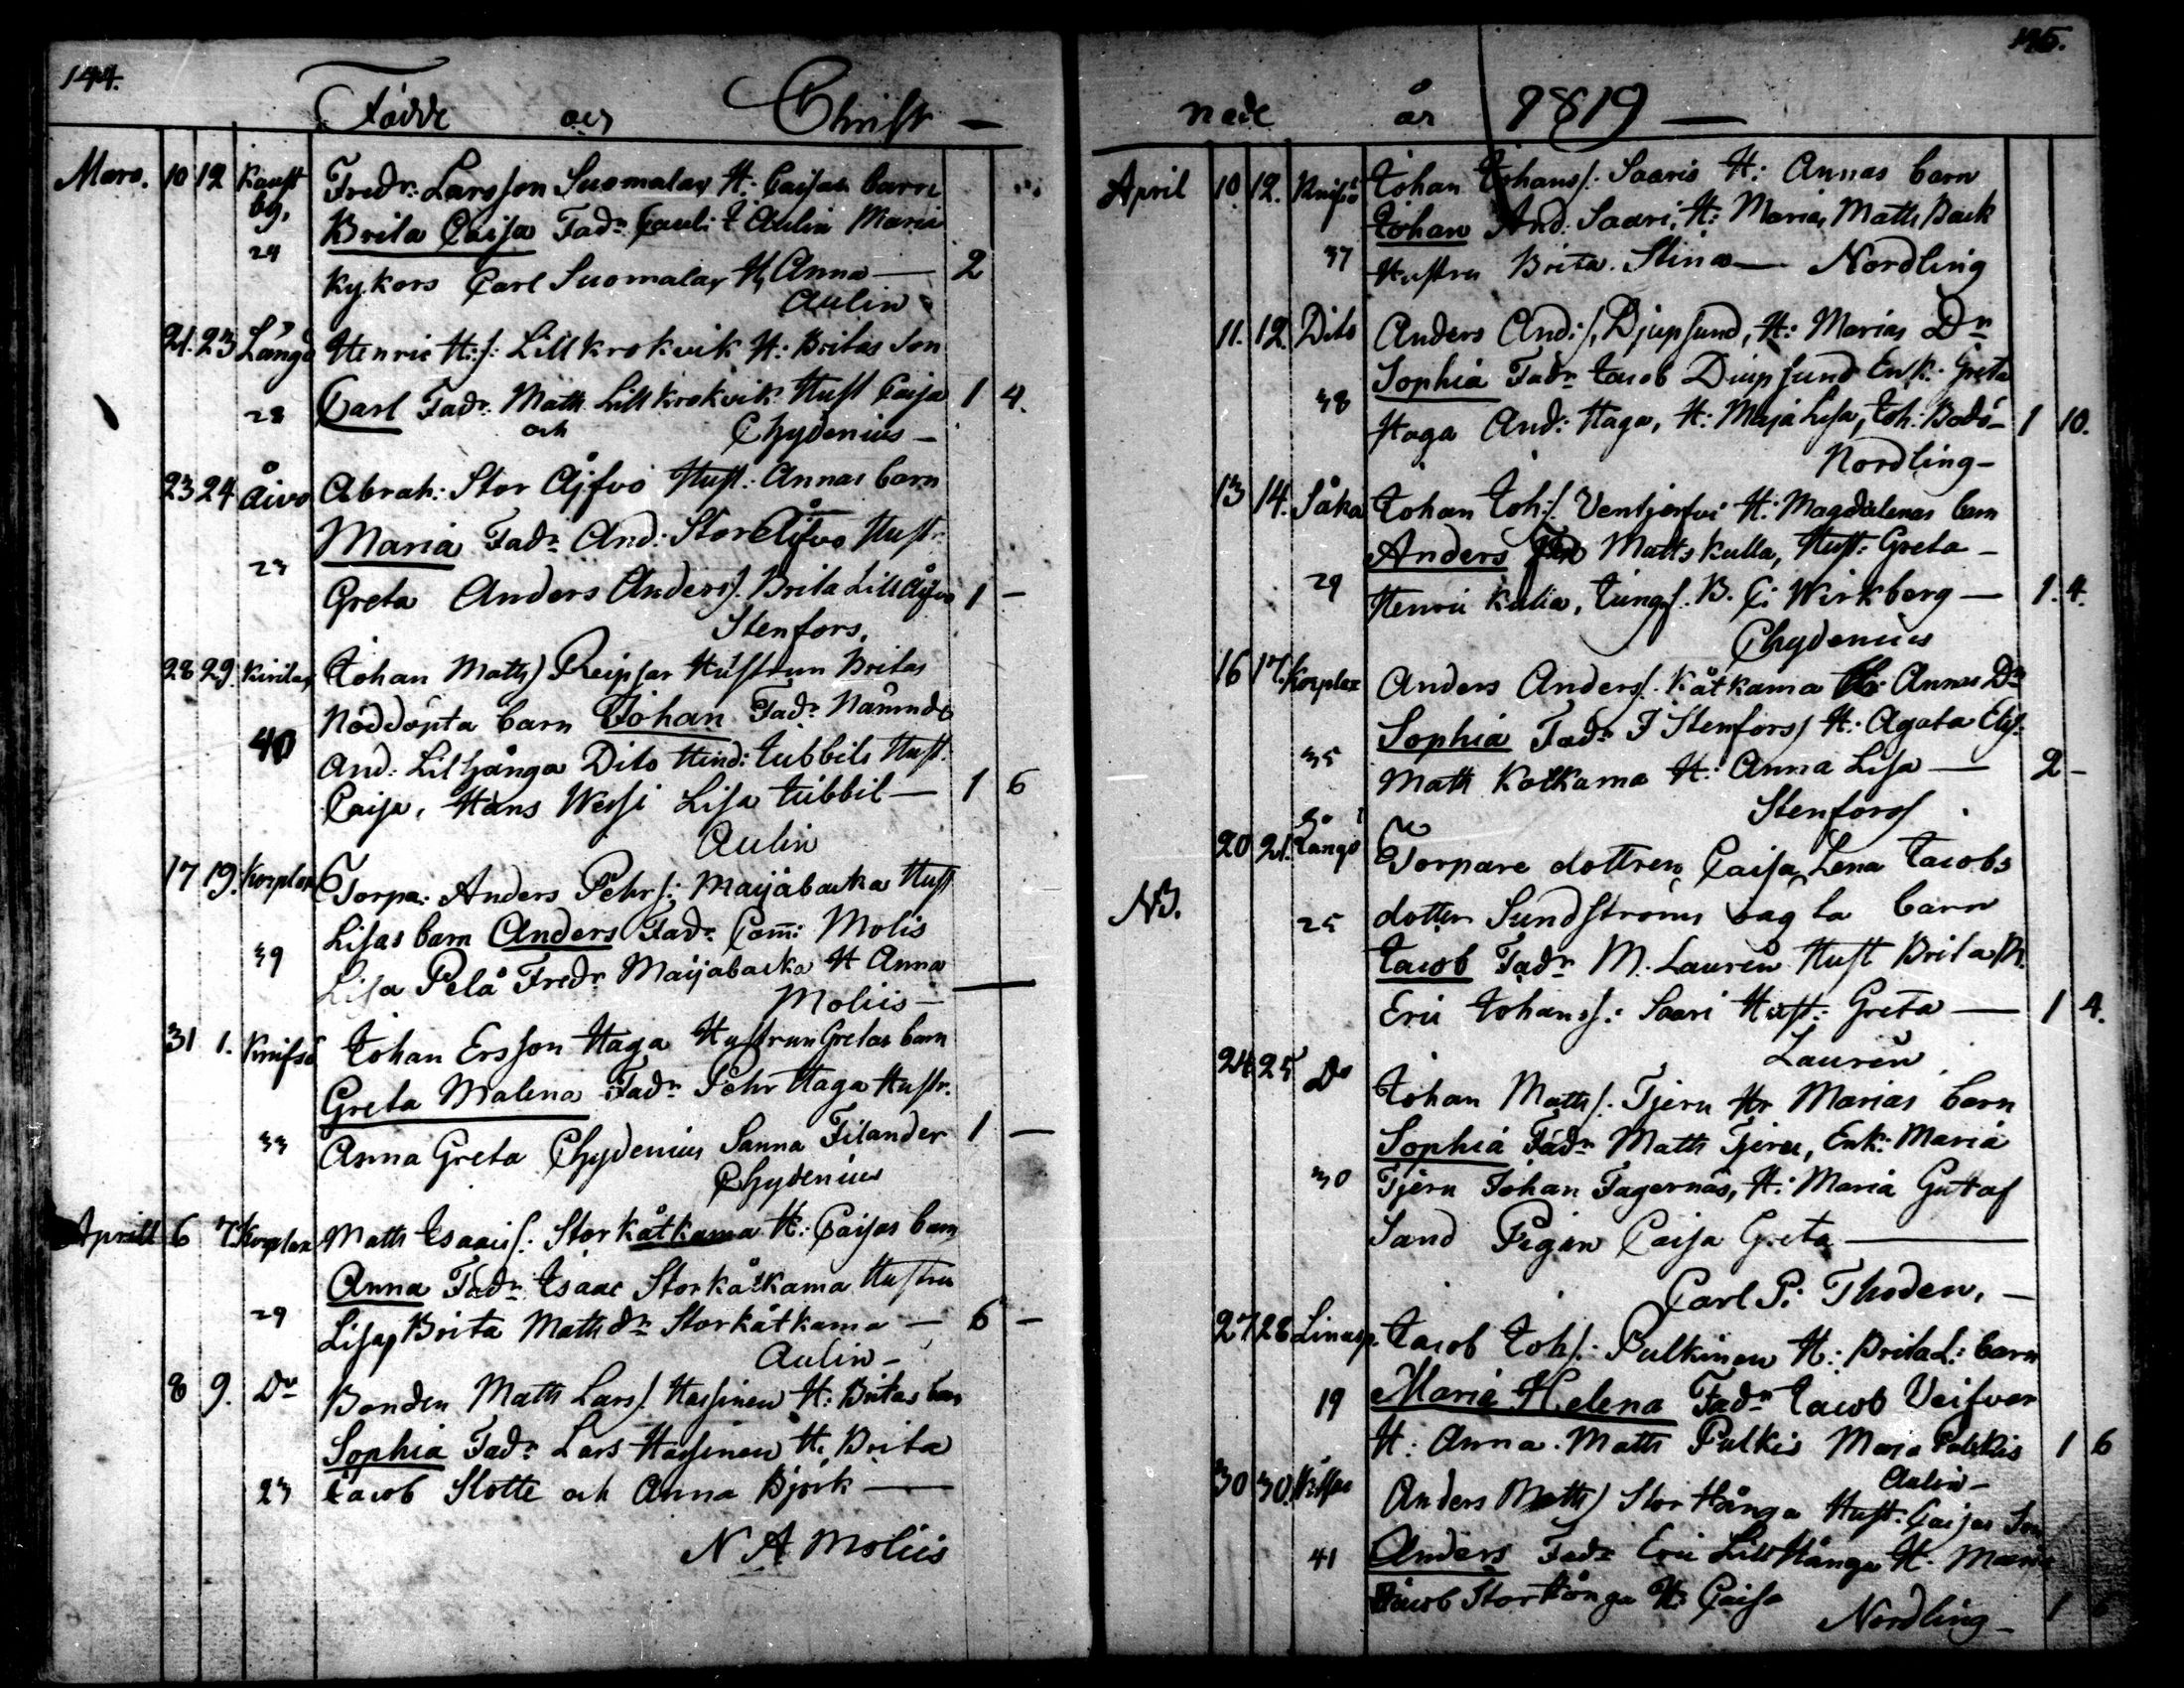 144.
Födde och Christ —
Mars. 10 12 Kaust
by, Fredr: Larsson Suomalax H: Caisas barn
Brita Caisa Fadr Cauli: t Aulin Maria
24
Kykors Carl Suomalax H, Anna — 2
Aulin
21. 23 Långö Henric H:s: Lill krokvik H: Britas son
28 Carl Fadr. Matth Lill krokvik Hust Caisa 1 4.
och Chydenius —
23 24 Åivo Abrah: Stor Åjfvo Hust: Annas barn
Maria Fadr And: Stor Åifvo Hustr.
23
Greta Anders Anders/. Brita Lill Åjfvo 1 —
Stenfors,
28 29. Kirilax Johan Matths) Reipsar Hustrun Britas
Nöddöpta barn Johan Fadr Nämnde
40
And: Lillhånga Dito Hind: Lubbils Hust.
Caisa, Hans Wessi Lisa Lubbil — 1 6
Aulin
17 19. Korplax Torpa: Anders Pehrs/; Maijabacka Hust
Lisas barn Anders Fadr Com: Molis
39
Lisa Pelå Fredr Maijabacka H Anna
Moliis —
31 1. Knifsö Johan Ersson Haga Hustrun Gretas barn
Greta Malena Fadr Pehr Haga Hustr.
33 Anna Greta Chydenius Sanna Filander 1 —
Chydenius
Aprill 6 7. Korplax Matth Isaacs/: Storkåtkama H: Caisas barn
Anna Fadr Isaac Storkåtkama Hustru
29 Lisa, Brita Mathdr Storkåtkama — 6 —
Aulin —
8 9. Do Bonden Matth Lars/ Hassinen H: Britas barn
Sophia Fadr Lars Hassinen H. Brita
23 Jacob Slotte och Anna Björk —
N A Moliis
145.
nade år 1819 —
April 10. 12. Knifsö Johan Johans/: Saaris H: Annas barn
Johan And. Saari, H: Maria, Matth Back
37 Hustru Brita Stina — Nordling
11. 12. Dito Anders And:/, Djupsund, H: Marias Dr
Sophia Fadr Jacob Diupsund Enk: Greta
38
Haga And: Haga, H: Maja Lisa, Joh: Bodö — 1 10.
Nordling —
13 14. Såka Johan Joh:/. Ventjerfvi H: Magdalenas barn
Anders Matts kulla, Hust: Greta —
29 Henric Kulla, Jungf. B. C: Wirkberg — 1. 4.
Chydenius
16 17. Korplax Anders Anders/. Kåtkama H: Annas Dr
Sophia Fadr J Stenfors/ H: Agata Elis.
35
Matth Kotkama H: Anna Lisa — 2 —
Stenfors/
20 21. Långö Torpare dottren Caisa Lena Jacobs
NB. 25 dotter Sundströms oägta barn
Jacob Fadr M. Laurén Hust Brita M.
Eric Johans/: Saari Hust: Greta — 1 4.
Laurén
24 25 Do Johan Matth/: Tjeru Hr Marias barn
Sophia Fadr Matth Tjeru, Enk: Maria
30 Tjeru Johan Fagernäs, H: Maria Gustaf
Sand Pigan Caisa Greta —
Carl P: Thoden, —
27 28 Linasp. Jacob Joh/: Pulkinen H: Brita L: barn
19 Maria Helena Fadr Jacob Veifvar
H: Anna Matth Pulkis Maja Pulkis 1 6
Aulin —
30 30. Anders Matth) Stor Hånga Hust: Caisas Son
41 Anders Fadr Eric Lill Hånga H. Maria
Jacob Storhånga H: Caisa 1 6
Nordling —